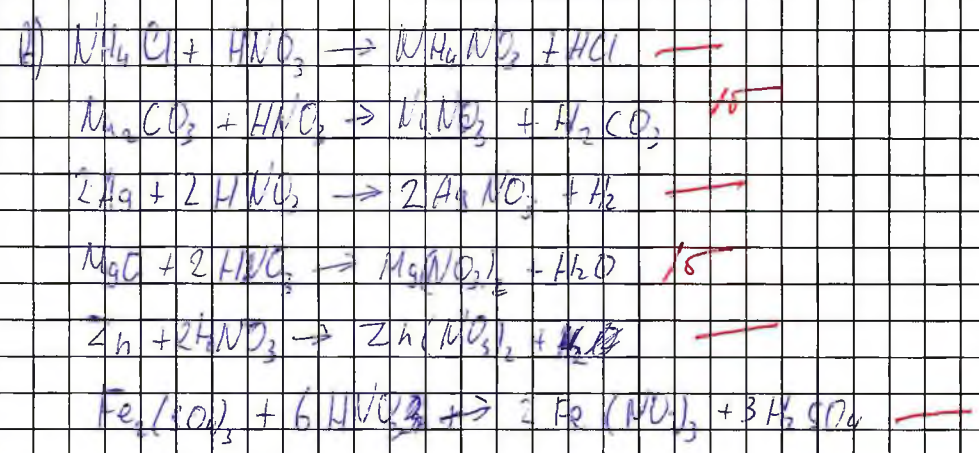 NH₄Cl + HNO₃ → NH₄NO₃ + HCl —
Na₂CO₃ + HNO₃ → NaNO₃ + H₂CO₃ 1б
2Ag + 2HNO₃ → 2AgNO₃ + H₂ —
MgO + 2HNO₃ → Mg(NO₃)₂ + H₂O 1б
Zn + 2HNO₃ → Zn(NO₃)₂ + —
Fe₂(SO₄)₃ + 6HNO₃ → 2Fe(NO₃)₃ + 3H₂SO₄ —